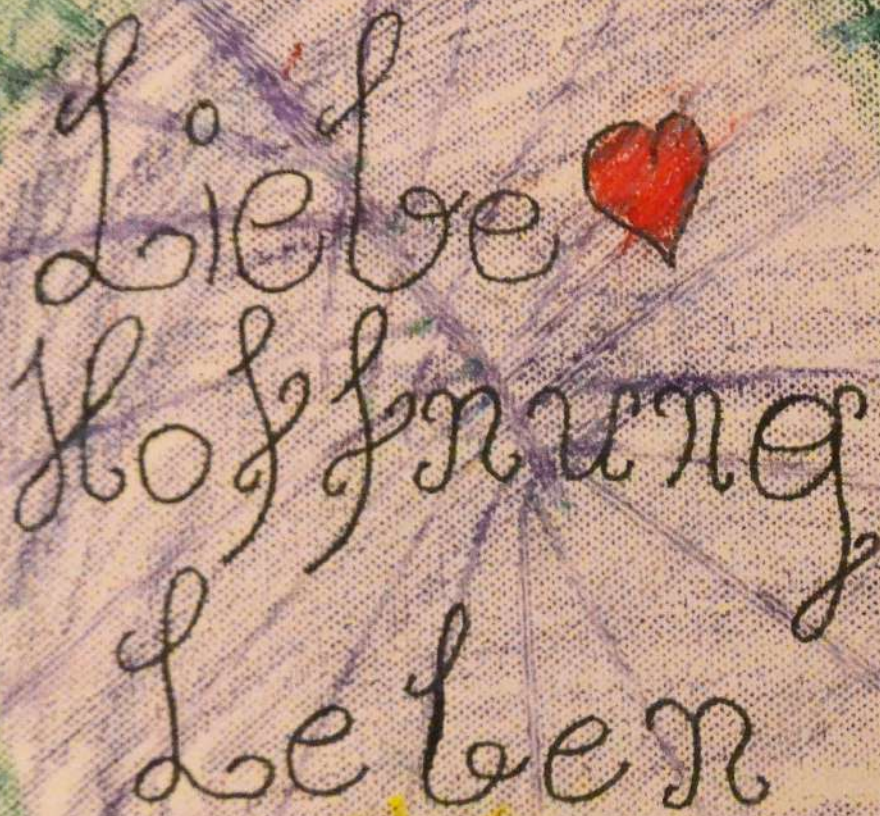 Liebe
Hoffnung
Leben